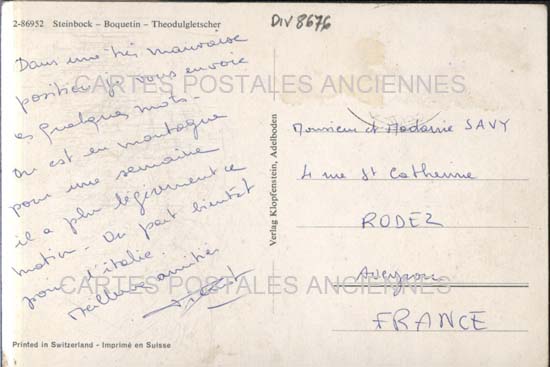 2-86952 Steinbock – Boquetin – Theodulgletscher
DIV 8676
Dans une très mauvaise
position je vous envoie
ces quelques mots -
On est en montagne
pour une semaine
il a plu légèrement ce
matin - On part bientôt
pour l'italie.
Meilleures amitiés
CARTES POSTALES ANCIENNES
CARTES POSTALES ANCIENNES
Verlag Klopfenstein, Adelboden
Monsieur et Madame SAVY
4 rue St Catherine
RODEZ
Aveyron
FRANCE
Printed in Switzerland - Imprimé en Suisse